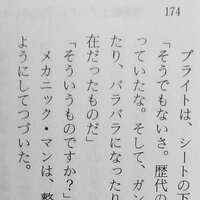 174
ブライトは、シートの下
「そうでもないさ。歴代の
っていたな。そして、ガン
たり、バラバラになったり
在だったものだ」
「そういうものですか？」
メカニック・マンは、整
ようにしてつづいた。